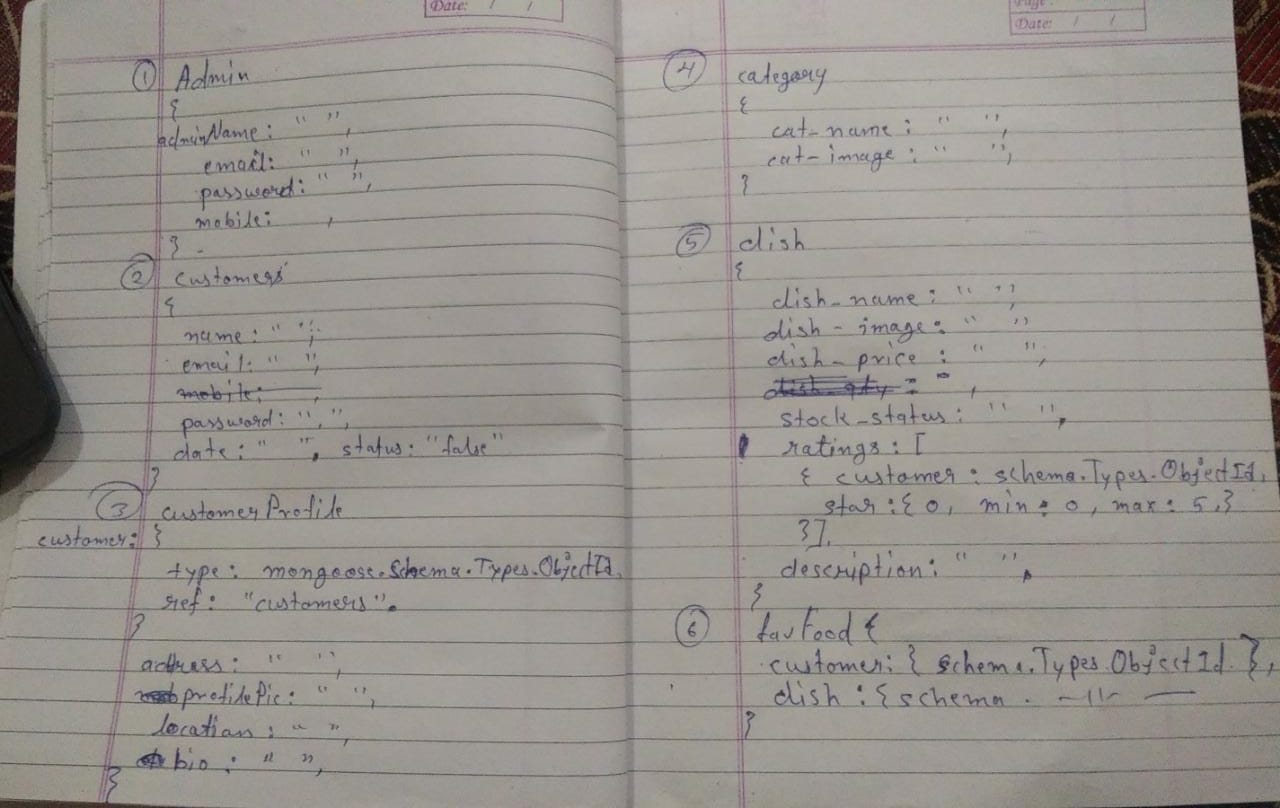 Date: / /
① Admin
{
adminName: " ",
email: " ",
password: " ",
mobile: ,
}
② customers
{
name: " ",
email: " ",
mobile: ,
password: " ",
date: " ", status: "false"
}
③ customerProfile
customer: {
type: mongoose.Schema.Types.ObjectId,
ref: "customers".
}
address: " ",
profilePic: " ",
location: " ",
bio: " ",
}
Page:
Date: / /
④ category
{
cat-name: " ",
cat-image: " ",
}
⑤ dish
{
dish-name: " ",
dish-image: " "
dish-price: " ",
dish-qty: " ,
stock-status: " ",
ratings: [
{ customer: schema.Types.ObjectId,
star: { 0, min: 0, max: 5,}
}],
description: " ",
}
⑥ favFood {
customer: { schema.Types.ObjectId },
dish: { schema. —11— —
}